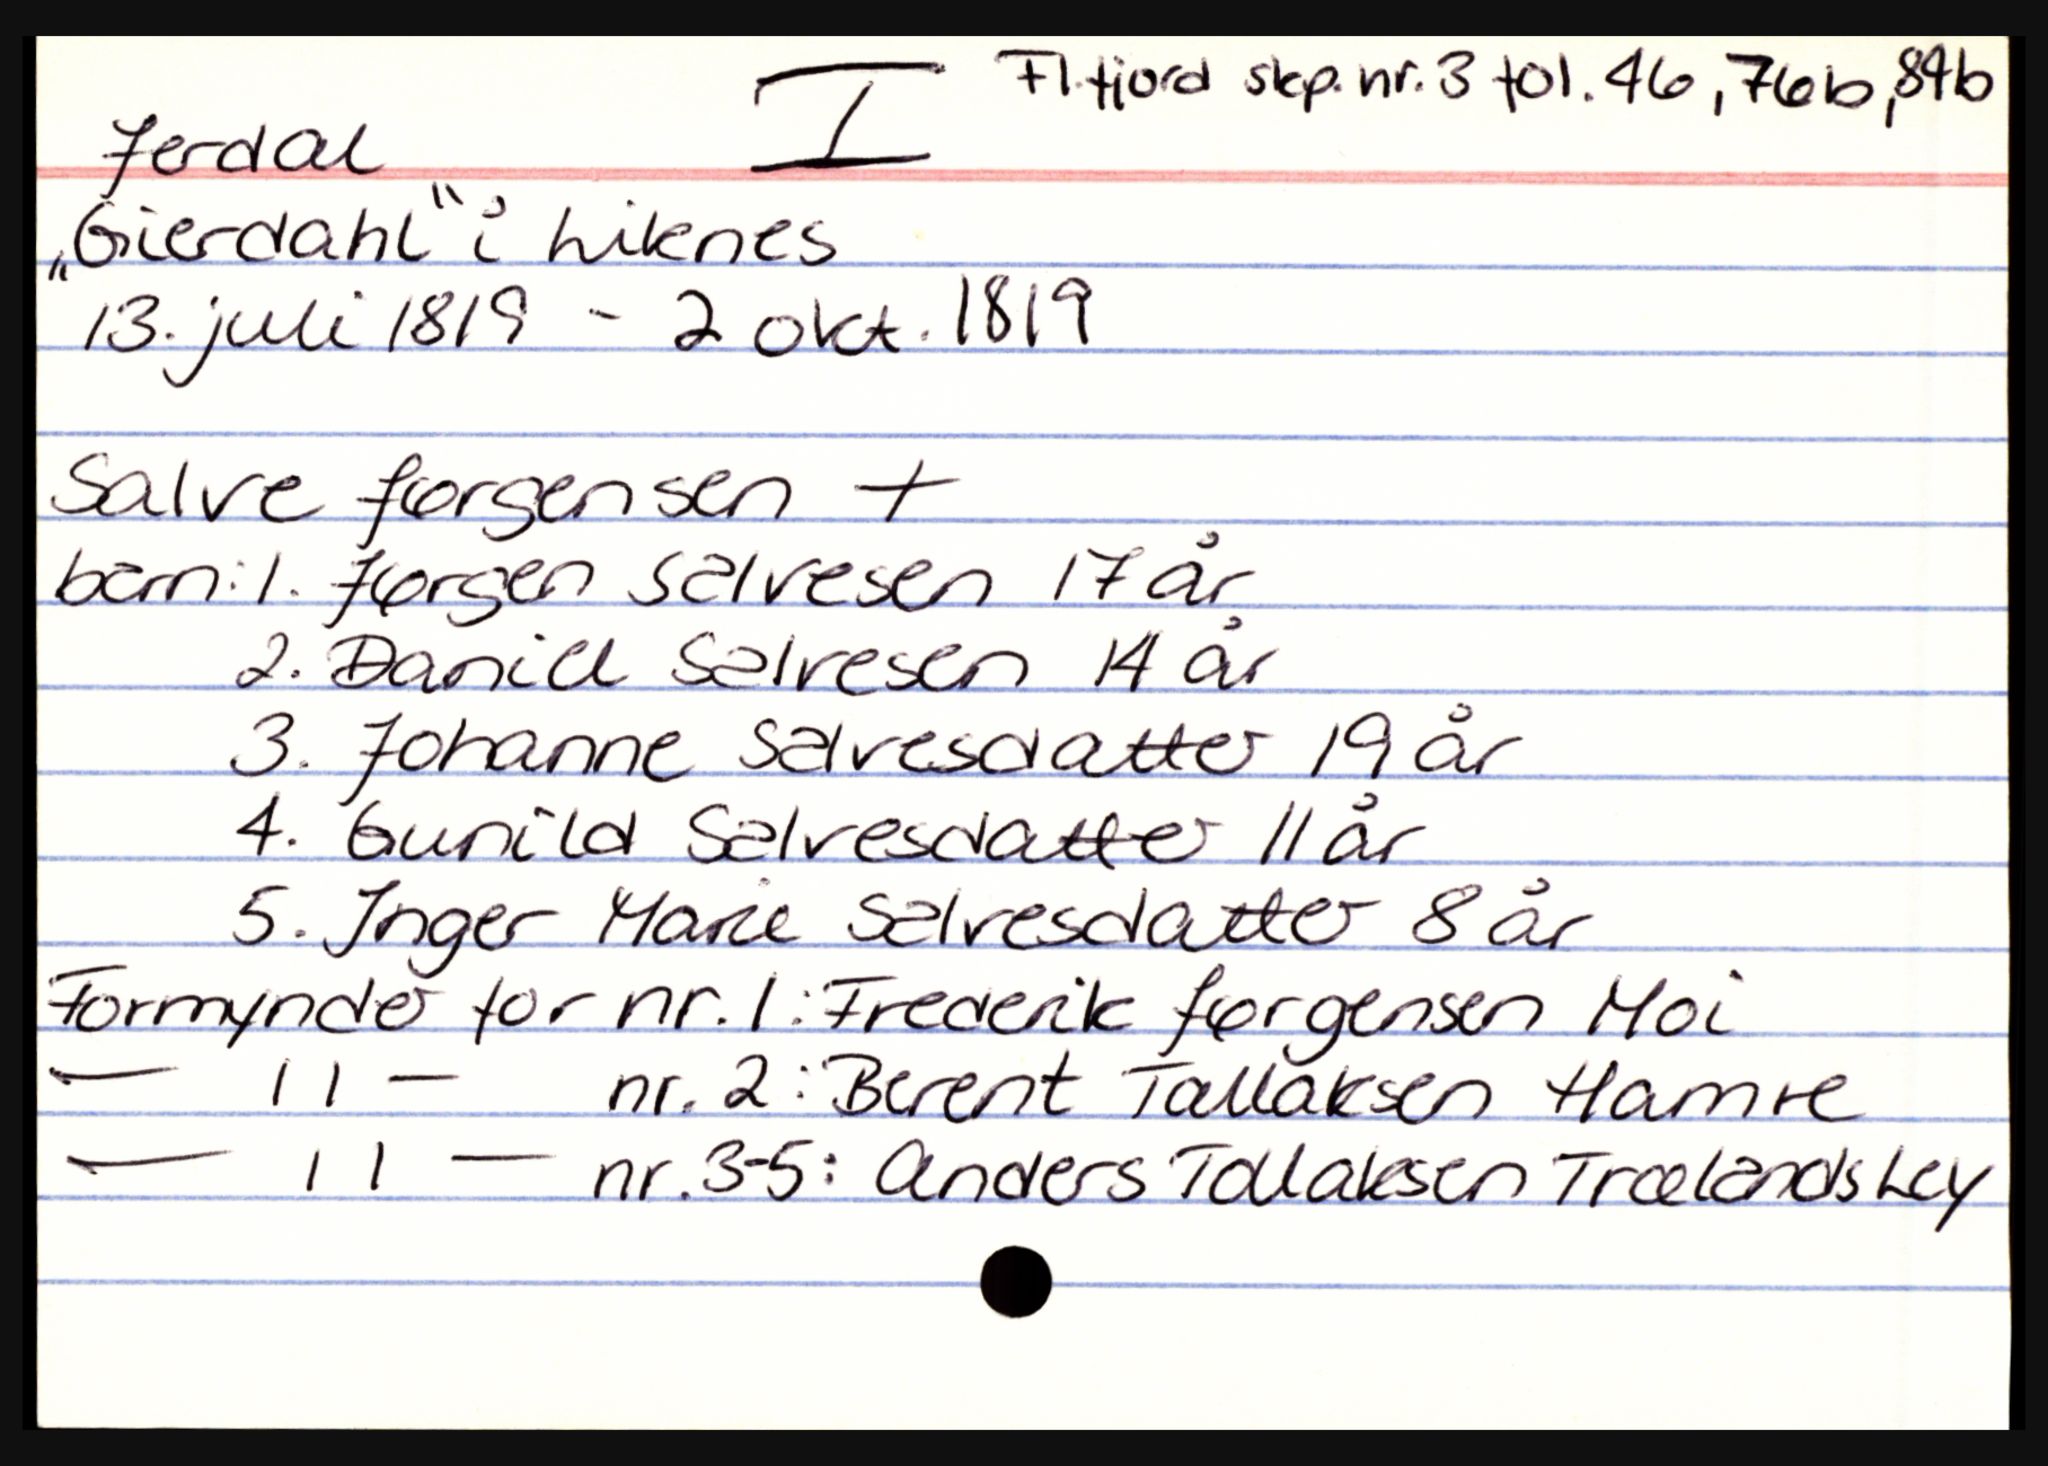 I Fl.fjord skp.nr.3 fol.46,76b,84b
Jerdal
„Gierdahl" i Liknes
13. juli 1819 - 2 okt. 1819
Salve Jørgensen +
barn: 1. Jørgen Salvesen 17 år
2. Daniel Salvesen 14 år
3. Johanne Salvesdatter 19 år
4. Gunild Salvesdatter 11 år
5. Inger Marie Salvesdatter 8 år
Formynder for nr. 1: Frederik Jørgensen Moi
— 11 — nr. 2: Berent Tallaksen Hamre
— 11 — nr. 3-5: Anders Tallaksen Trælandsley